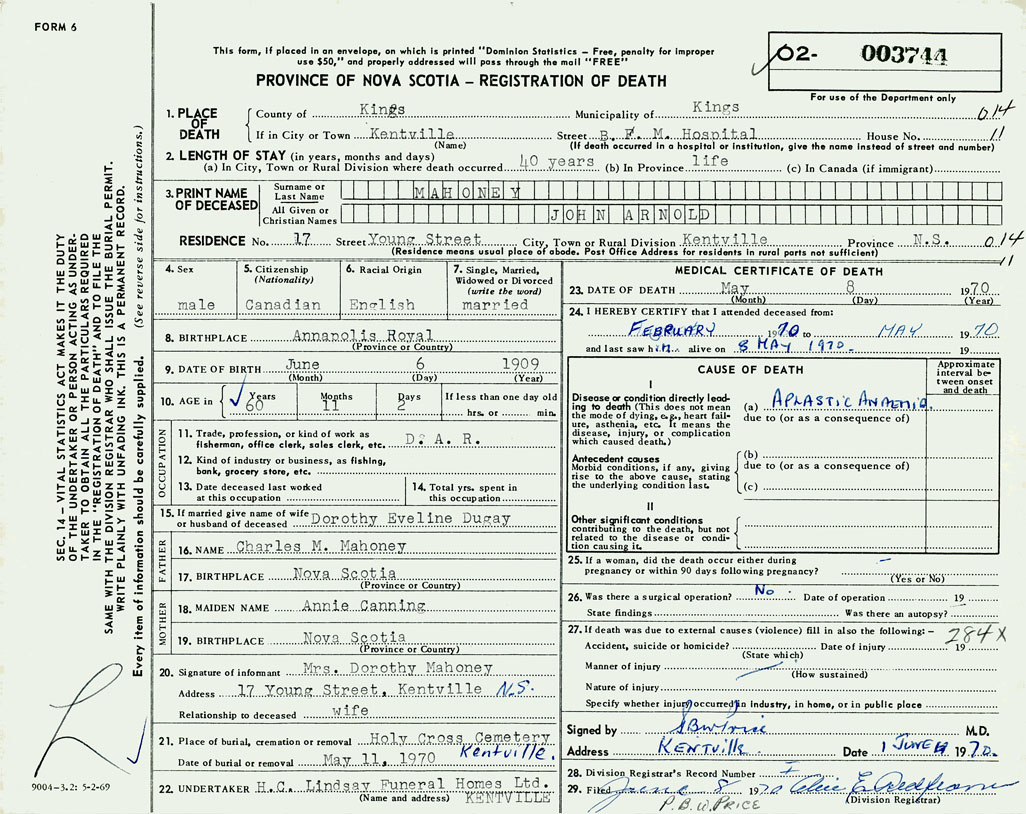 FORM 6
This form, if placed in an envelope, on which is printed "Dominion Statistics – Free, penalty for improper
use $50," and properly addressed will pass through the mail "FREE"
PROVINCE OF NOVA SCOTIA – REGISTRATION OF DEATH
02- 003744
For use of the Department only
1. PLACE OF DEATH
County of Kings Municipality of Kings 014
If in City or Town Kentville Street B. F. M. Hospital House No. 11
(Name) (If death occurred in a hospital or institution, give the name instead of street and number)
2. LENGTH OF STAY (in years, months and days)
(a) In City, Town or Rural Division where death occurred 40 years (b) In Province life (c) In Canada (if immigrant)
3. PRINT NAME OF DECEASED
Surname or Last Name MAHONEY
All Given or Christian Names JOHN ARNOLD
RESIDENCE No. 17 Street Young Street City, Town or Rural Division Kentville Province N.S. 014
(Residence means usual place of abode. Post Office Address for residents in rural parts not sufficient) 11
4. Sex
male
5. Citizenship
(Nationality)
Canadian
6. Racial Origin
English
7. Single, Married,
Widowed or Divorced
(write the word)
married
8. BIRTHPLACE Annapolis Royal
(Province or Country)
9. DATE OF BIRTH June 6 1909
(Month) (Day) (Year)
10. AGE in Years Months Days If less than one day old
60 11 2 hrs. or min.
OCCUPATION
11. Trade, profession, or kind of work as
fisherman, office clerk, sales clerk, etc. D. A. R.
12. Kind of industry or business, as fishing,
bank, grocery store, etc.
13. Date deceased last worked
at this occupation
14. Total yrs. spent in
this occupation
15. If married give name of wife
or husband of deceased Dorothy Eveline Dugay
FATHER
16. NAME Charles M. Mahoney
17. BIRTHPLACE Nova Scotia
(Province or Country)
MOTHER
18. MAIDEN NAME Annie Canning
19. BIRTHPLACE Nova Scotia
(Province or Country)
20. Signature of informant Mrs. Dorothy Mahoney
Address 17 Young Street, Kentville N.S.
Relationship to deceased wife
21. Place of burial, cremation or removal Holy Cross Cemetery
Kentville.
Date of burial or removal May 11, 1970
22. UNDERTAKER H.C. Lindsay Funeral Homes Ltd.
(Name and address) KENTVILLE
MEDICAL CERTIFICATE OF DEATH
23. DATE OF DEATH May 8 1970
(Month) (Day) (Year)
24. I HEREBY CERTIFY that I attended deceased from:
FEBRUARY 1970 to MAY 1970
and last saw him alive on 8 MAY 1970. 19
CAUSE OF DEATH
Approximate
interval be-
tween onset
and death
I
Disease or condition directly lead-
ing to death (This does not mean
the mode of dying, e.g., heart fail-
ure, asthenia, etc. It means the
disease, injury, or complication
which caused death.)
(a) APLASTIC ANAEMIA.
due to (or as a consequence of)
Antecedent causes
Morbid conditions, if any, giving
rise to the above cause, stating
the underlying condition last.
(b)
due to (or as a consequence of)
(c)
II
Other significant conditions
contributing to the death, but not
related to the disease or condi-
tion causing it.
25. If a woman, did the death occur either during
pregnancy or within 90 days following pregnancy? –
(Yes or No)
26. Was there a surgical operation? No. Date of operation 19
State findings Was there an autopsy?
27. If death was due to external causes (violence) fill in also the following:– 284X
Accident, suicide or homicide? Date of injury 19
(State which)
Manner of injury
(How sustained)
Nature of injury
Specify whether injury occurred in industry, in home, or in public place
Signed by M.D.
Address KENTVILLE Date 1 JUNE 1970.
28. Division Registrar's Record Number
29. Filed June 8 1970
(Division Registrar)
P.B.W. PRICE
SEC. 14 – VITAL STATISTICS ACT MAKES IT THE DUTY
OF THE UNDERTAKER OR PERSON ACTING AS UNDER-
TAKER TO OBTAIN ALL THE PARTICULARS REQUIRED
IN THE "REGISTRATION OF DEATH" AND TO FILE THE
SAME WITH THE DIVISION REGISTRAR WHO SHALL ISSUE THE BURIAL PERMIT.
WRITE PLAINLY WITH UNFADING INK. THIS IS A PERMANENT RECORD.
Every item of information should be carefully supplied. (See reverse side for instructions.)
9004-3.2: 5-2-69